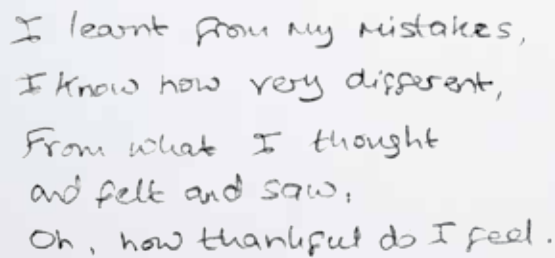 I learnt from my mistakes,
I know how very different,
From what I thought
and felt and saw,
Oh, how thankful do I feel.